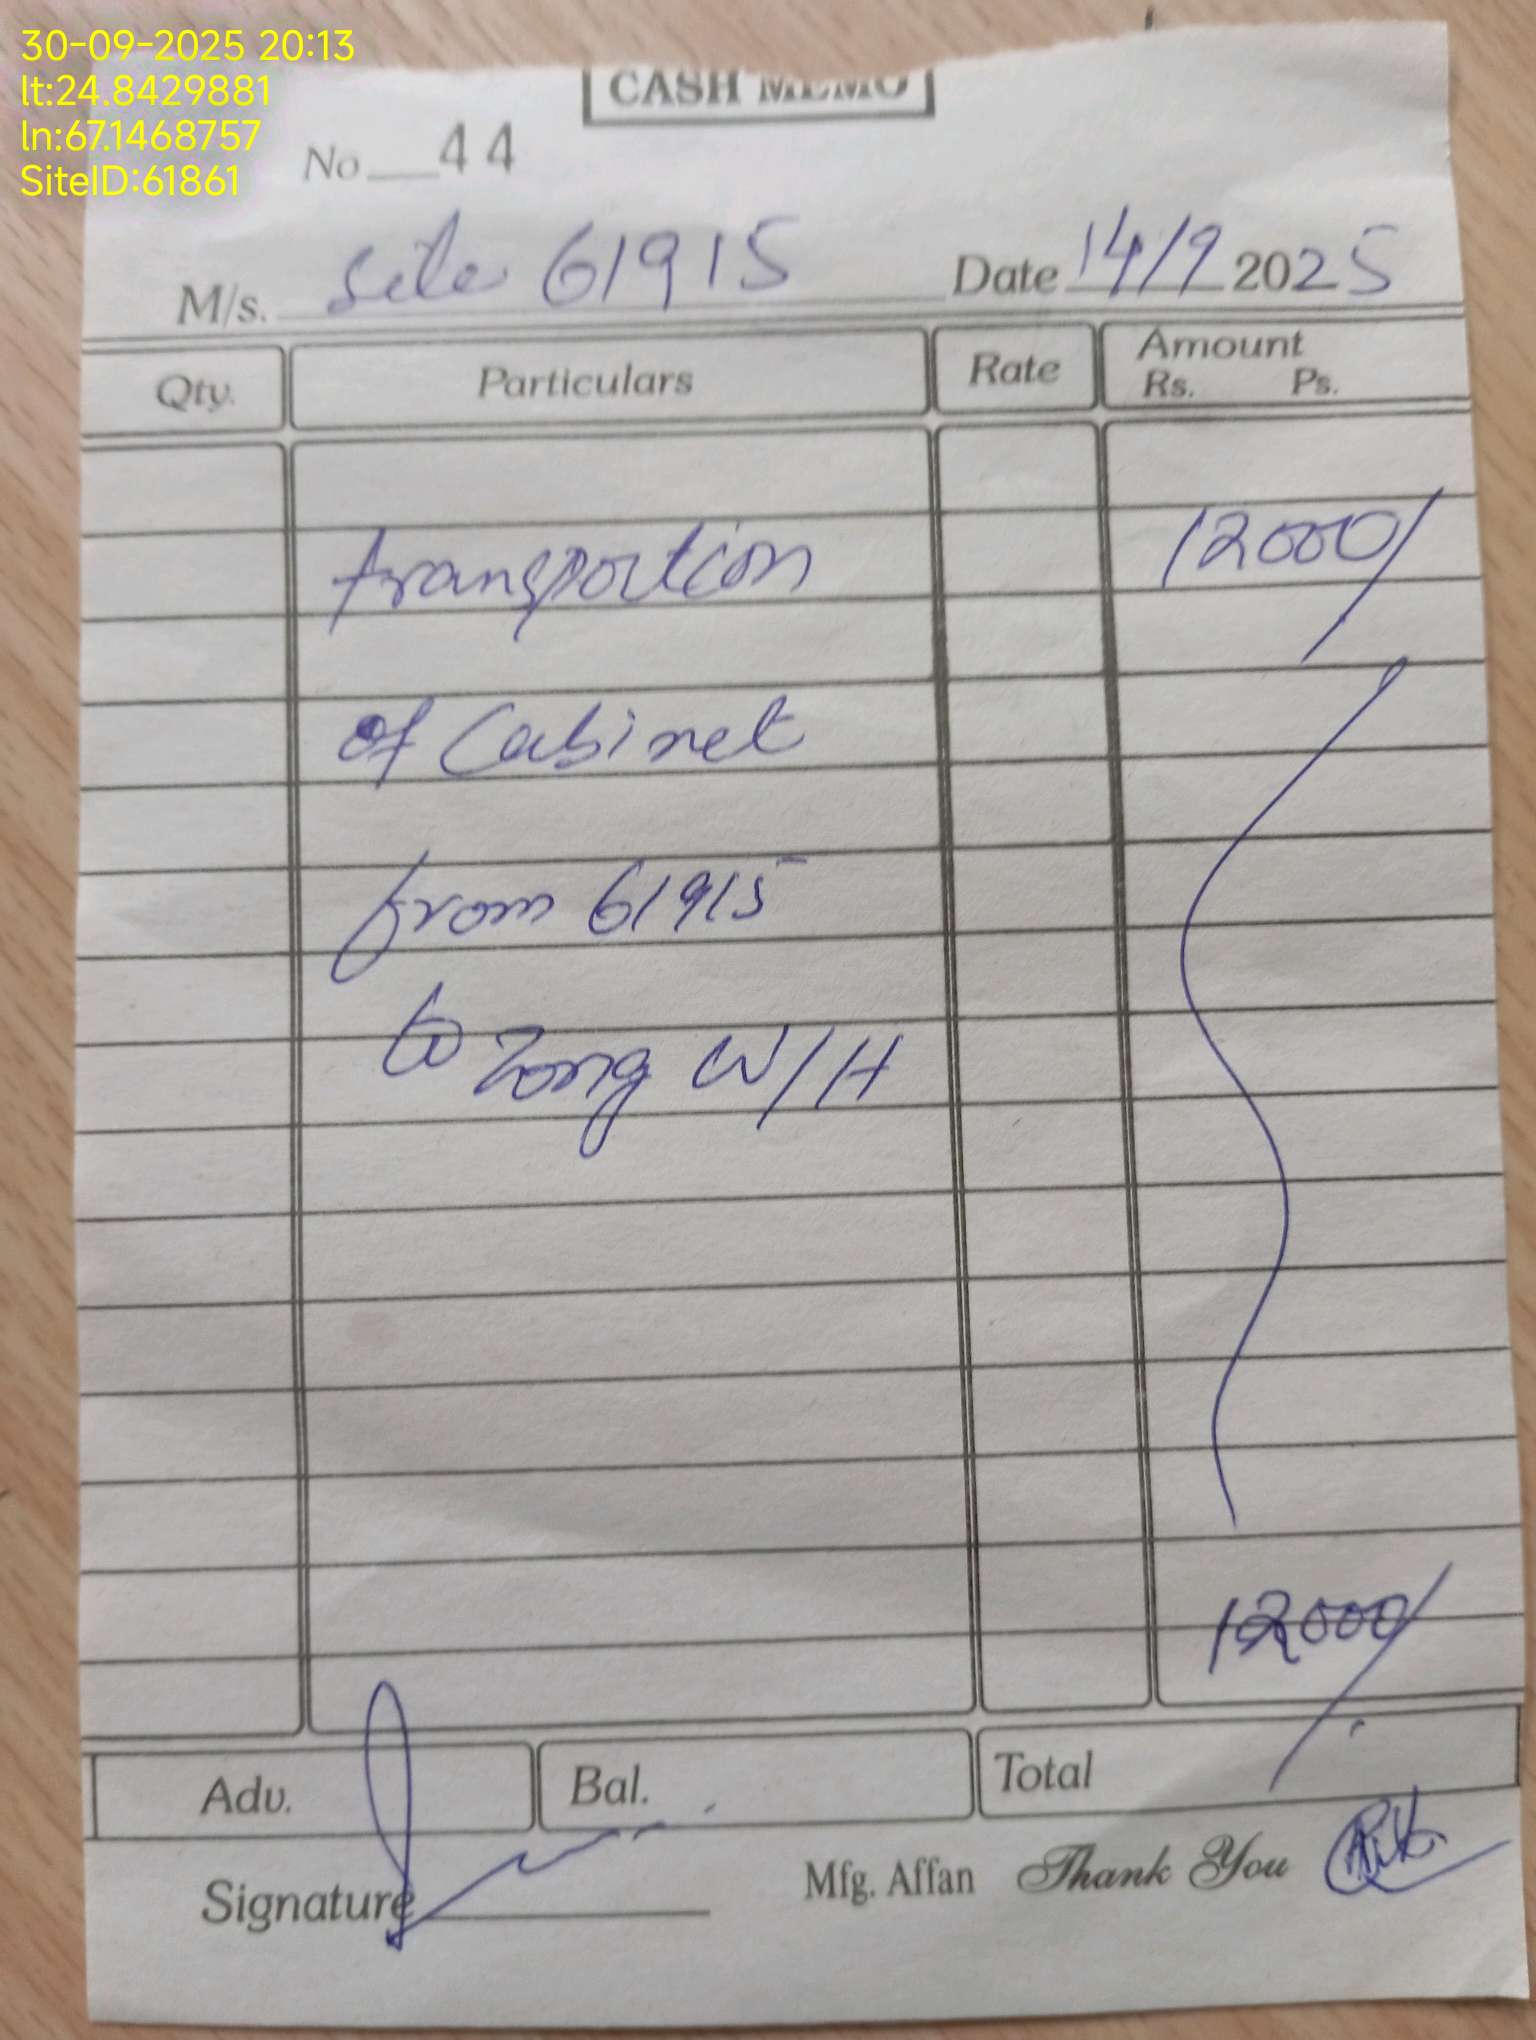 30-09-2025 20:13
lt:24.8429881
ln:67.1468757
SiteID:61861
CASH MEMO
No 44
M/s. Site 61915 Date 14/9 2025
Qty. Particulars Rate Amount
Rs. Ps.
transportion 12000/
of Cabinet
from 61915
to Zong W/H
12000/
Adv. Bal. Total
Signature Mfg. Affan Thank You